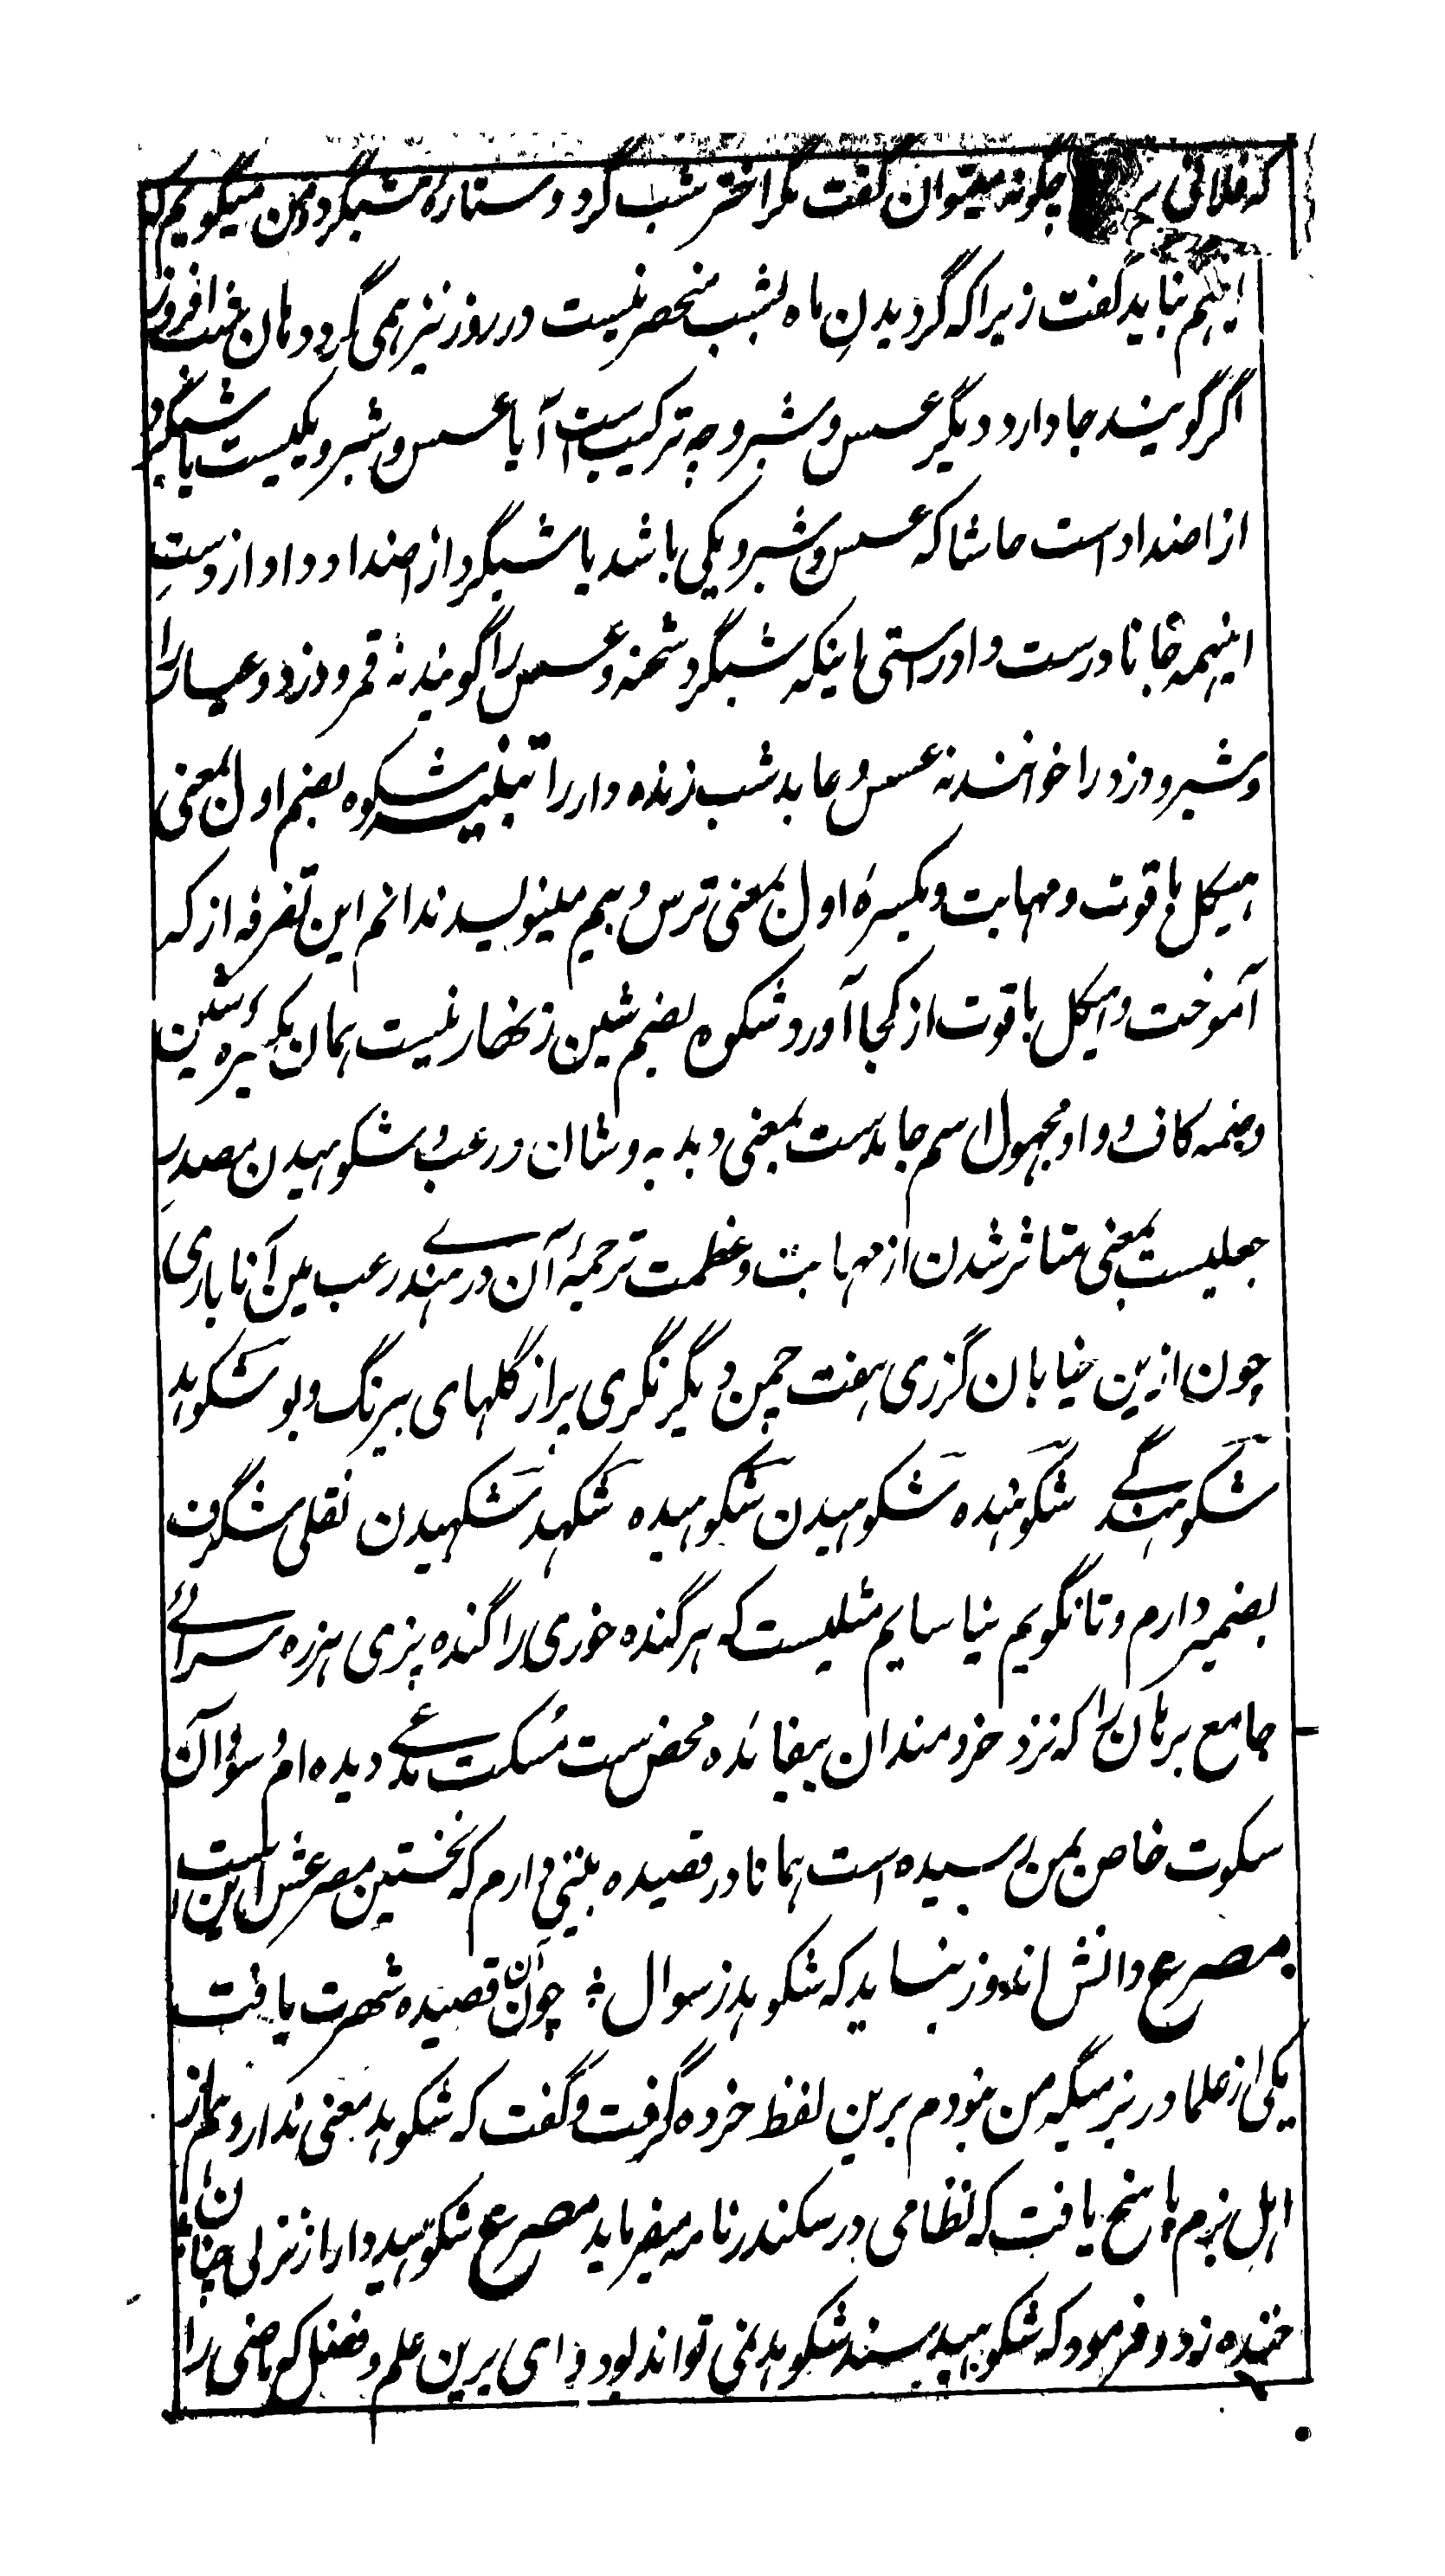 که فلانی بر چگونه میتوان گفت مگر اختر شب گرد و ستارهٔ شبگرد و من میگویم که
اینهم نباید گفت زیرا که گردیدنِ ماه بشب منحصر نیست در روز نیز همی گردد همان شب افروز
اگر گویند جا دارد دیگر عسس و شبرو چه ترکیب است آیا عسس و شبرو یکیست یا شبگرد
از اضداد است حاشا که عسس و شبرو یکی باشد یا شبگرد از اضداد داد از دستِ
اینهمه خانا درست و ادراستی ها اینکه شبگرد شحنه و عسس را گویند نه قمر و دزد و عیار را
و شبرو دزد را خوانند نه عسس و عابد شب زنده دار را تنبیه شکوه بضم اول بمعنی
هیکل با قوت و مهابت و بکسرهٔ اول بمعنی ترس و بیم مینویسد ندانم این تفرقه از که
آموخت و هیکل با قوت از کجا آورد شکوه بضم شین زنهار نیست همان بکسرهٔ شین
و ضمه کاف و واو مجهول اسم جامدست بمعنی دبدبه و شان و رعب و شکوهیدن مصدرِ
جعلیست بمعنی متاثر شدن از مهابت و عظمت ترجمهٔ آن در هندی رعب مین آنا باری
چون ازین خیابان گزری هفت چمن دیگر نگری پر از گلهای بیرنگ و بو شکوہد
شکوہندگی شکوہندہ شکوہیدن شکوہیدہ شکہد شکہیدن نقلی شگرف
بضمیر دارم و تا نگویم نیاسایم مثلیست که هر گنده خوری را گنده پزی هرزه سرائے
جامع برهان را که نزد خردمندان بیفائده محض ست مسکت مدعی دیده ام و سؤال آن
سکوت خاص بمن رسیده است همانا در قصیده بیتی دارم که نخستین مصرعش این است
مصرع دانش اندوز نباید که شکوہد ز سوال ؞ چون آن قصیده شهرت یافت
یکی از علما در بزمیکه من نبودم برین لفظ خرده گرفت و گفت که شکوہد معنی ندارد هم از
اهل بزم پاسخ یافت که نظامی در سکندر نامه میفرماید مصرع شکوهید دارا ز نزلی چنان
خنده زد و فرمود که شکوهید سند شکوہد نمی تواند بود وای برین علم و فضل که ماضی را